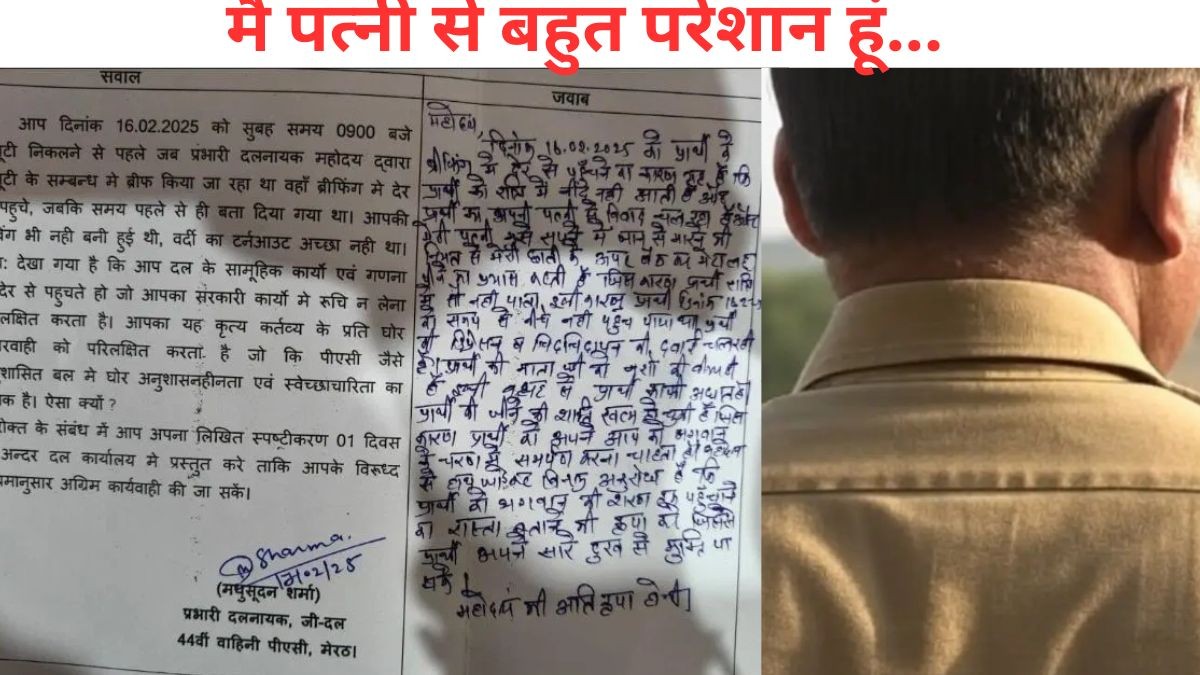 मै पत्नी से बहुत परेशान हूं...
सवाल
आप दिनांक 16.02.2025 को सुबह समय 0900 बजे
यूटी निकलने से पहले जब प्रभारी दलनायक महोदय द्वारा
यूटी के सम्बन्ध मे ब्रीफ किया जा रहा था वहाँ ब्रीफिंग मे देर
पहुचे, जबकि समय पहले से ही बता दिया गया था। आपकी
भी नही बनी हुई थी, वर्दी का टर्नआउट अच्छा नही था।
देखा गया है कि आप दल के सामूहिक कार्यो एवं गणना
देर से पहुचते हो जो आपका सरकारी कार्यो मे रूचि न लेना
लक्षित करता है। आपका यह कृत्य कर्तव्य के प्रति घोर
को परिलक्षित करता है जो कि पीएसी जैसे
शासित बल मे घोर अनुशासनहीनता एवं स्वेच्छाचारिता का
क है। ऐसा क्यों ?
रोक्त के संबंध में आप अपना लिखित स्पष्टीकरण 01 दिवस
अन्दर दल कार्यालय मे प्रस्तुत करे ताकि आपके विरूध्द
मानुसार अग्रिम कार्यवाही की जा सकें।
Sharma
(मधुसूदन शर्मा)
प्रभारी दलनायक, जी-दल
44वीं वाहिनी पीएसी, मेरठ।
जवाब
महोदय,
दिनांक 16.02.2025 को प्रार्थी के
ब्रीफिंग मे देर से पहुँचने का कारण यह है कि
प्रार्थी को रात्रि में नींद नही आती है
प्रार्थी का अपनी पत्नी से विवाद चल रहा है
मेरी पत्नी मुझे सपने में जान से मारने की
नियत से मेरी छाती के ऊपर बैठ कर मेरा
पीने का प्रयास करती है जिस कारण प्रार्थी रात्रि
में सो नही पाता, इसी कारण प्रार्थी दिनांक
को समय से नही पहुच पाया था
की डिप्रेशन व चिडचिडापन की दवाई चल रही
प्रार्थी की माता जी को नसों की बीमारी
है
प्रार्थी की जीने की खत्म हो चुकी है जिस
कारण प्रार्थी अपने आप को भगवान
के चरण में समर्पण करना चाहता है
से अनुरोध है कि
प्रार्थी को भगवान की शरण पहुँचाने
का रास्ता बताने की कृपा करें जिससे
प्रार्थी अपने सारे दुख से मुक्ति पा
सके।
महोदय की अति कृपा होगी।